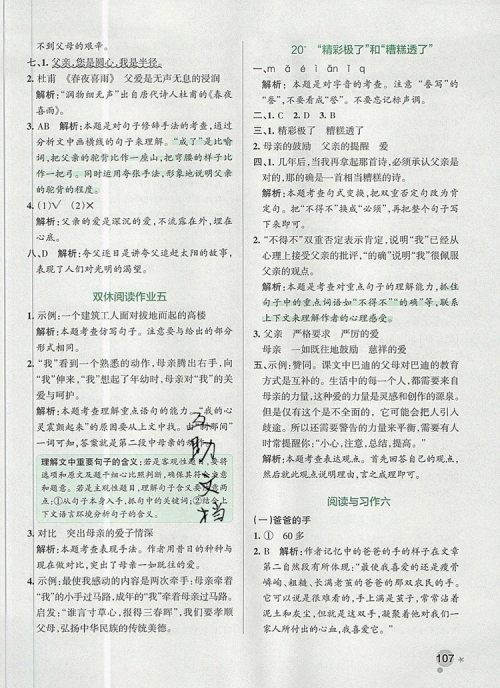 不到父母的艰辛。
七、1. 父亲,您是圆心,我是半径。
2. 杜甫 《春夜喜雨》 父爱是无声无息的浸润
解析:“润物细无声”出自唐代诗人杜甫的《春夜
喜雨》。
3. AB 解析:本题是对句子修辞手法的考查,通过
分析文中画横线的句子来理解。“成了”是比喻
词,把父亲的驼背比作一座山,把弯腰的样子比
作一把弓。同时运用夸张手法,形象地说明父亲
的驼背的程度。
4. (1)√ (2)×
解析:父亲的爱是深沉的爱,不流露在外,埋在
心底。
八、D 解析:夸父逐日是讲夸父追赶太阳的故事,
表现了人们对光明的渴望。
双休阅读作业五
1. 示例:一个建筑工人面对拔地而起的高楼
解析:本题考查仿写句子。注意要与给出的部分
形式相同。
2. “我”看到一个熟悉的动作,母亲腾出右手,向
“我”伸来,“我”想起了年幼时,母亲对“我”的关
爱与呵护。
解析:本题考查理解重点语句的能力。“我的心
灵震颤起来”的原因要从上文中找。由“刹那间”
一词可知,答案就是第二段中母亲的动作。
理解文中重要句子的含义:若是客观性题目,要将
选项和原文及题干细心比照判断,确保其符合文意
和题意。若是主观性题目,理解句子含义要注意两
点:①从句子本身入手,抓句中的关键词;②结合上
下文语言环境分析句子的含义。
3. 对比 突出母亲的爱子情深
解析:本题考查表现手法。作者用昔日的种种与
现在做对比,突出了母亲一如既往的爱。
4. 示例:最使我感动的内容是两次牵手:母亲牵着
“我”的小手过马路,成年的“我”牵着母亲过马路。
启发:“谁言寸草心,报得三春晖”,我们要孝顺
父母,弘扬中华民族的传统美德。
互助文档
20* “精彩极了”和“糟糕透了”
一、m ǎ é i ā n ī q
解析:本题是对字音的考查。注意“誊写”的
“誊”,不要看成“誉”。不要忘记标声调。
二、1. C 2. D 3. B
三、1. 精彩极了 糟糕透了
2. 母亲的鼓励 父亲的提醒 爱
四、1. 几年后,当我再拿起那首诗,必须承认父亲是
对的,那的确是一首相当糟糕的诗。
解析:本题考查句式变换,把双重否定改为肯
定句。把“不得不”换成“必须”,再把整个句子写
下来即可。
2. “不得不”双重否定表示肯定,说明“我”已经从
心理上接受父亲的观点。“的确”说明“我”很佩服
父亲的观点。
解析:本题是对重点句子的理解能力,抓住
句子中的重点词语如“不得不”“的确”等,联系
上下文来理解作者的心理感受。
3. 父亲 严格要求 严厉的爱
母亲 一如既往地鼓励 慈祥的爱
五、示例:赞同。课文中巴迪的父母对巴迪的教育
方式是互补的。生活中的每一个人,都需要来自
母亲的力量,这种爱的力量是灵感和创作的源泉。
但是仅有这个是不全面的,它可能会把人引入
歧途。所以还需要警告的力量来平衡,需要有人
时常提醒你:“小心,注意,总结,提高。”
解析:本题考查表达观点。首先回答自己的观点,
然后就此观点说明理由,言之成理即可。
阅读与习作六
(一)爸爸的手
1. ① 60多
2. B 解析:作者记忆中的爸爸的手的样子在文章
第二自然段有所体现:“最使我喜爱的还是瘦骨
嶙峋、粗糙、长满老茧的爸爸的那双农民的手。
它可以说是很难看的,手上满是茧子,常常沾着
泥土和灰尘,但就是这双手,凝聚着他对我们一
家人所付出的心血,我喜爱它。”
107